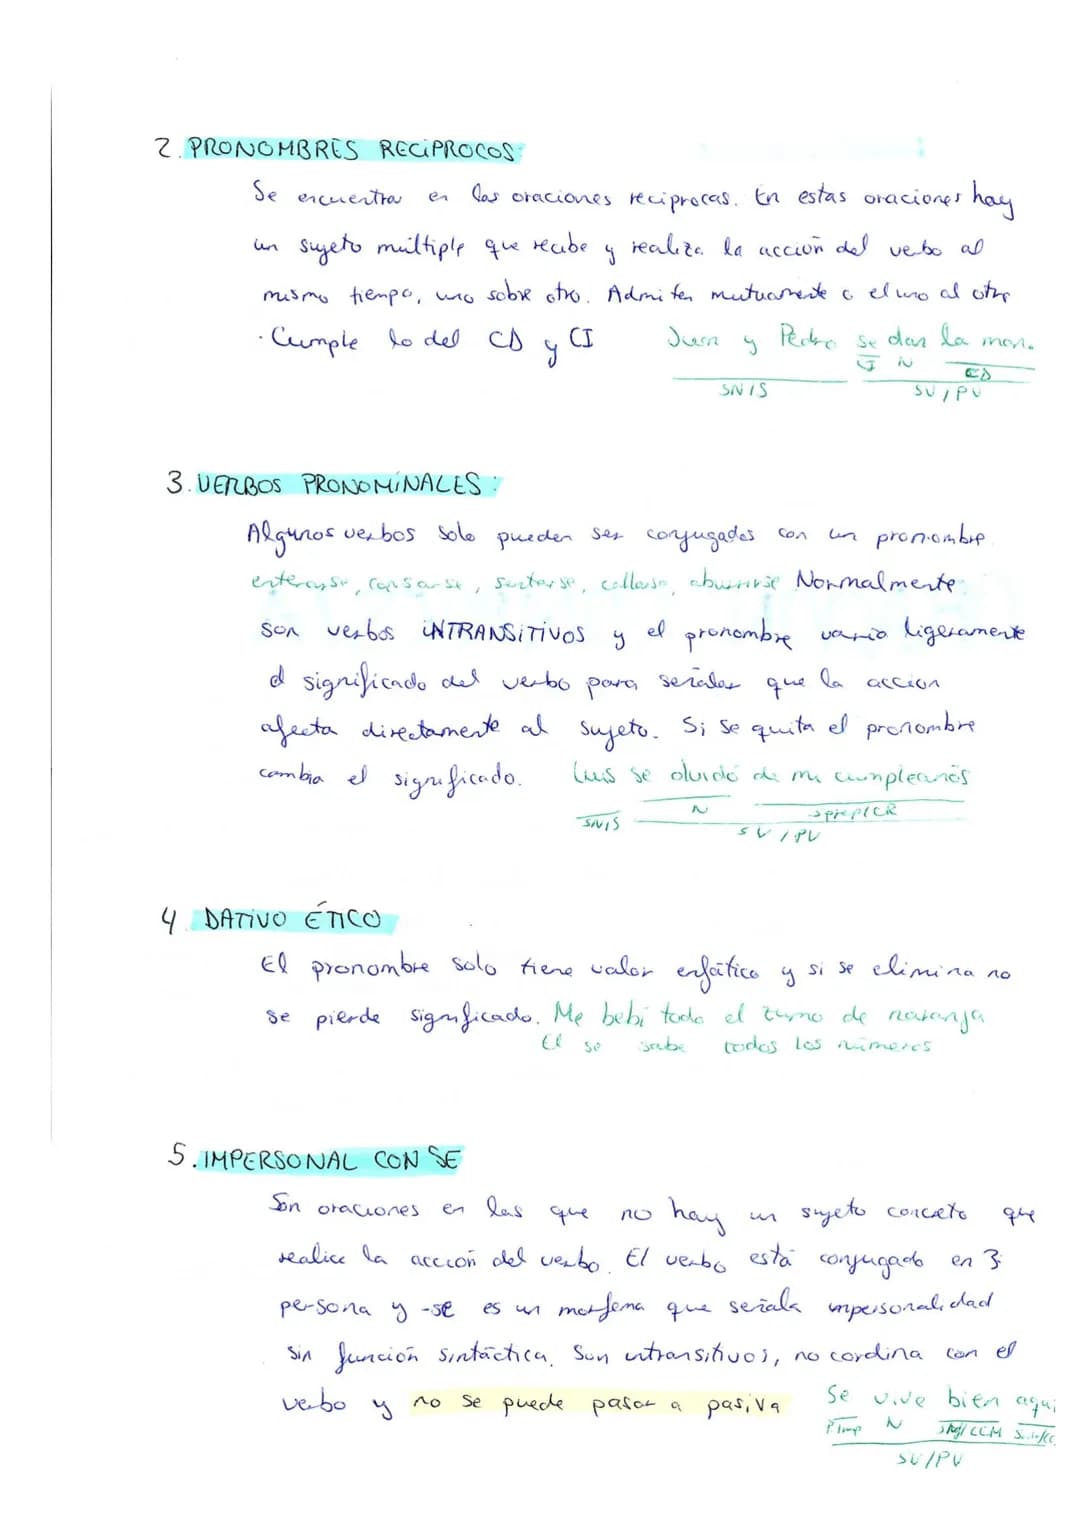 2. PRONOMBRES RECIPROCOS:
Se encuentra en las oraciones reciprocas. En estas oraciones hay
un sujeto múltiple que recibe y realiza la acción del verbo al
mismo tiempo, uno sobre otro. Admiten mutuamente o el uno al otro
· Cumple lo del CD y CI
Juan y Pedro se dan la mano.
N CD
SN/S SV/PV
3. VERBOS PRONOMINALES:
Algunos verbos solo pueden ser conjugados con un pronombre
enterarse, cansarse, sentarse, callarse, aburrirse Normalmente
son verbos INTRANSITIVOS y el pronombre varia ligeramente
el significado del verbo para señalar que la accion
afecta directamente al sujeto. Si se quita el pronombre
cambia el significado.
Luis se olvidó de mi cumpleaños
SN/S N Sprep/CR
SV/PV
4. DATIVO ÉTICO
El pronombre solo tiene valor enfático y si se elimina no
se pierde significado. Me bebi todo el zumo de naranja
El se sabe todos los números
5. IMPERSONAL CON SE
Son oraciones en las que no hay un sujeto concreto que
realice la acción del verbo. El verbo está conjugado en 3ª
persona y -se es un morfema que señala impersonalidad
sin función sintáctica. Son intransitivos, no cordina con el
verbo y no se puede pasar a pasiva
Se vive bien aqui
PImp N CCM
SV/PV